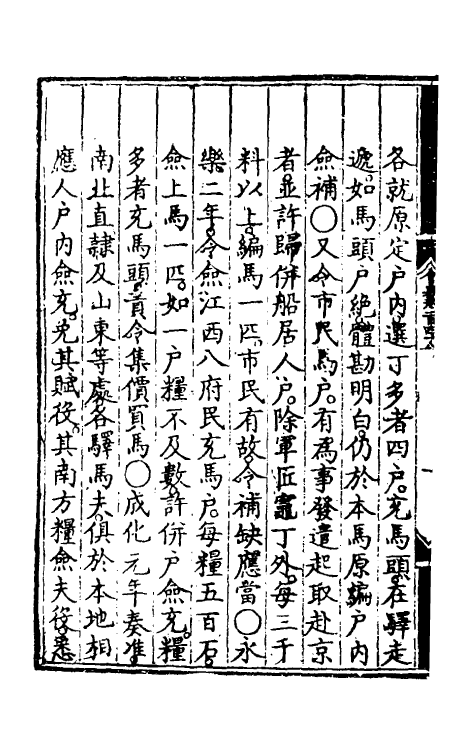 各就原定户内選丁多者四户充馬頭在驛走
遞如馬頭戶絶體勘明白仍於本馬原編户内
僉補○又令市民馬户有為事發遣起取赴京
者並許歸併船居人户除軍匠竈丁外每三千
料以上編馬一匹市民有故令補缺應當○永
樂二年令僉江西八府民充馬户每糧五百石
僉上馬一匹如一户糧不及數許併户僉充糧
多者充馬頭責令集價買馬○成化元年奏准
南北直隷及山東等處各驛馬夫俱於本地相
應人户内僉充免其賦役其南方糧僉夫役悉